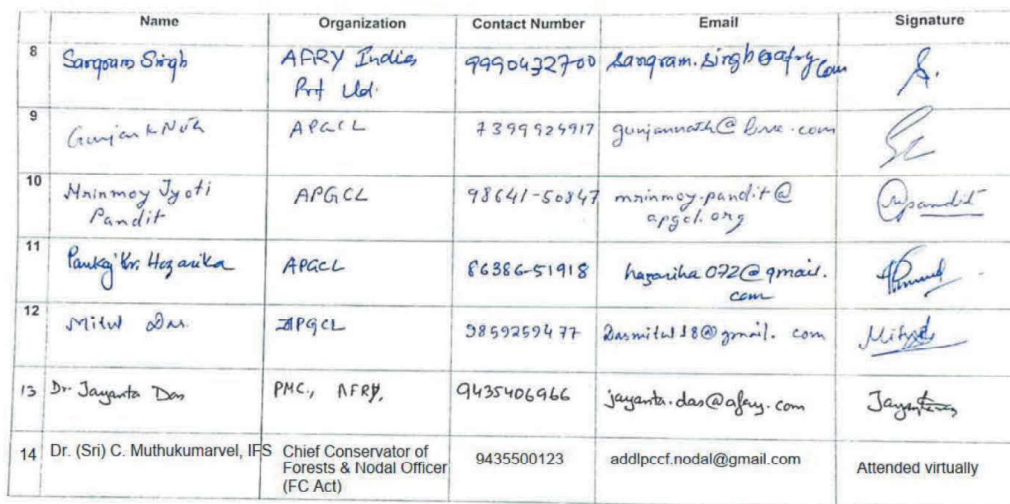 Name Organization Contact Number Email Signature
8 Sangram Singh AFRY India 9990432700 sangram.singh@afry.com
Pvt Ltd.
9 Gunjan k Nath APGCL 7399924917 gunjannath@live.com
10 Mrinmoy Jyoti APGCL 98641-50847 mrinmoy.pandit@
Pandit apgcl.org
11 Pankaj Kr. Hazarika APGCL 86386-51918 hazarika072@gmail.
com
12 Mitul Das. APGCL 9859259477 Dasmitul18@gmail.com
13 Dr. Jayanta Das PMC, AFRY. 9435406966 jayanta.das@afry.com
14 Dr. (Sri) C. Muthukumarvel, IFS Chief Conservator of 9435500123 addlpccf.nodal@gmail.com Attended virtually
Forests & Nodal Officer
(FC Act)